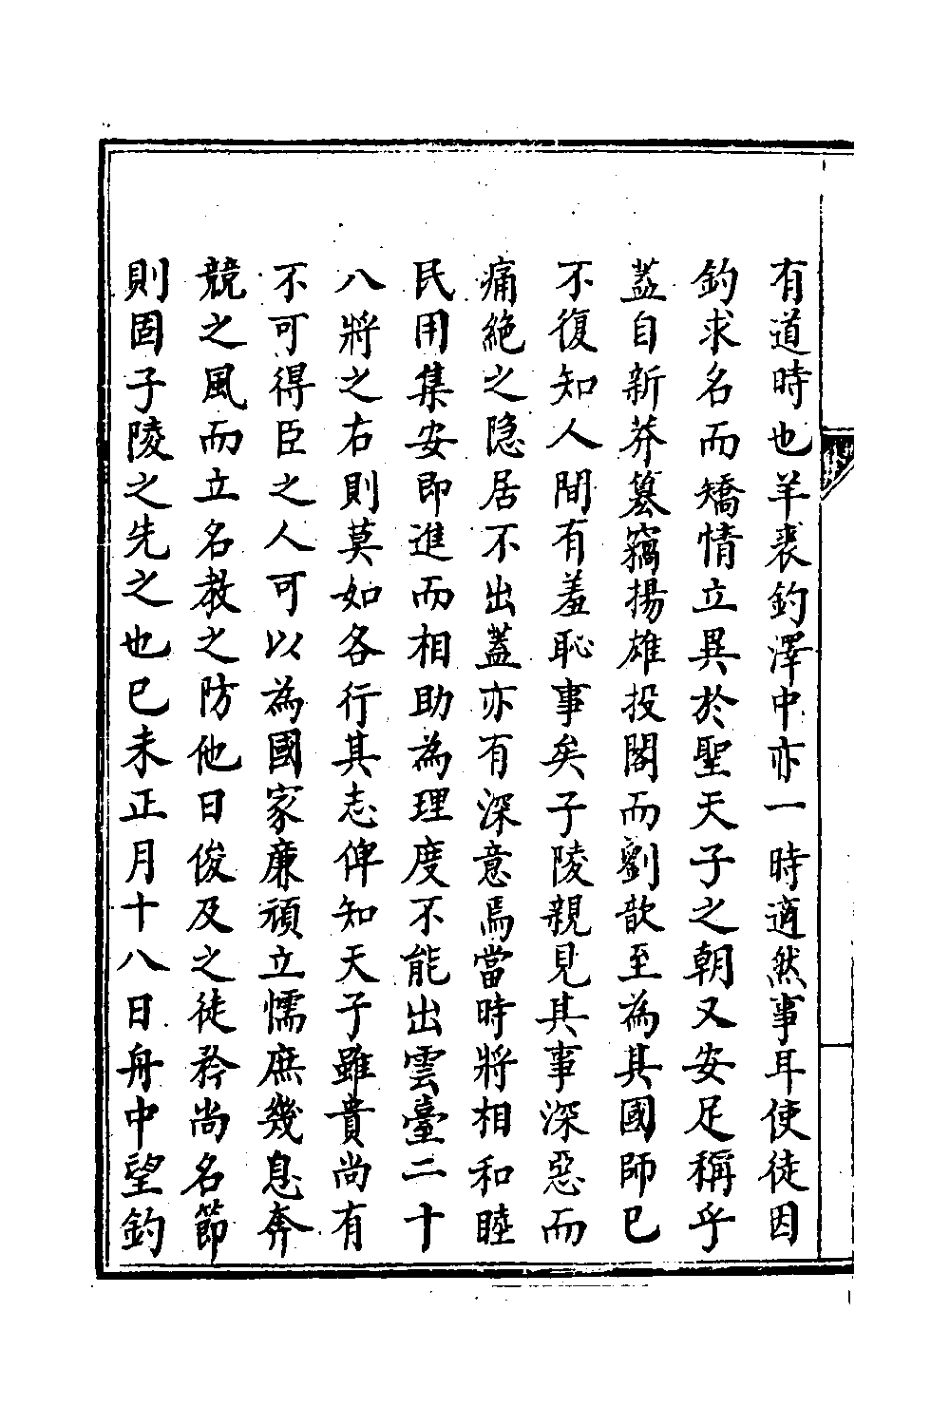 有道時也羊裘釣澤中亦一時適然事耳使徒因
釣求名而矯情立異於聖天子之朝又安足稱乎
蓋自新莽篡竊揚雄投閣而劉歆至為其國師已
不復知人間有羞恥事矣子陵親見其事深惡而
痛絶之隐居不出蓋亦有深意焉當時將相和睦
民用集安即進而相助為理度不能出雲臺二十
八將之右則莫如各行其志俾知天子雖貴尚有
不可得臣之人可以為國家廉頑立懦庶幾息奔
競之風而立名教之防他日俊及之徒矜尚名節
則固子陵之先之也已未正月十八日舟中望釣